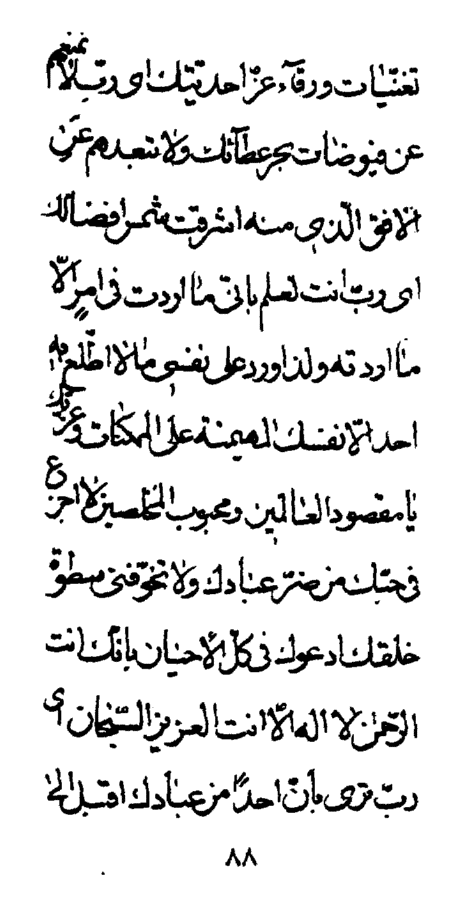 تغنّیات ورقآء عزّ احدیّتک ای ربّ لا تمنعهم
عن فیوضات بحر عطآئک ولا تبعدهم عن
الافق الّذی منه اشرقت شمس افضالک
ای ربّ انت تعلم بانّی ما اردت فی امرٍ الّا
ما اردته ولذا ورد علی نفسی ما لا اطّلع به
احد الّا نفسک المهیمنة علی الممکنات وعزّتک
یا مقصود العالمین ومحبوب المخلصین لا اجزع
فی حبّک من ضرّ عبادک ولا تخوّفنی سطوة
خلقک ادعوک فی کلّ الاحیان بانّک انت
الرّحمن لا اله الّا انت العزیز السّبحان ای
ربّ تری بانّ احداً من عبادک اقبل الی
۸۸